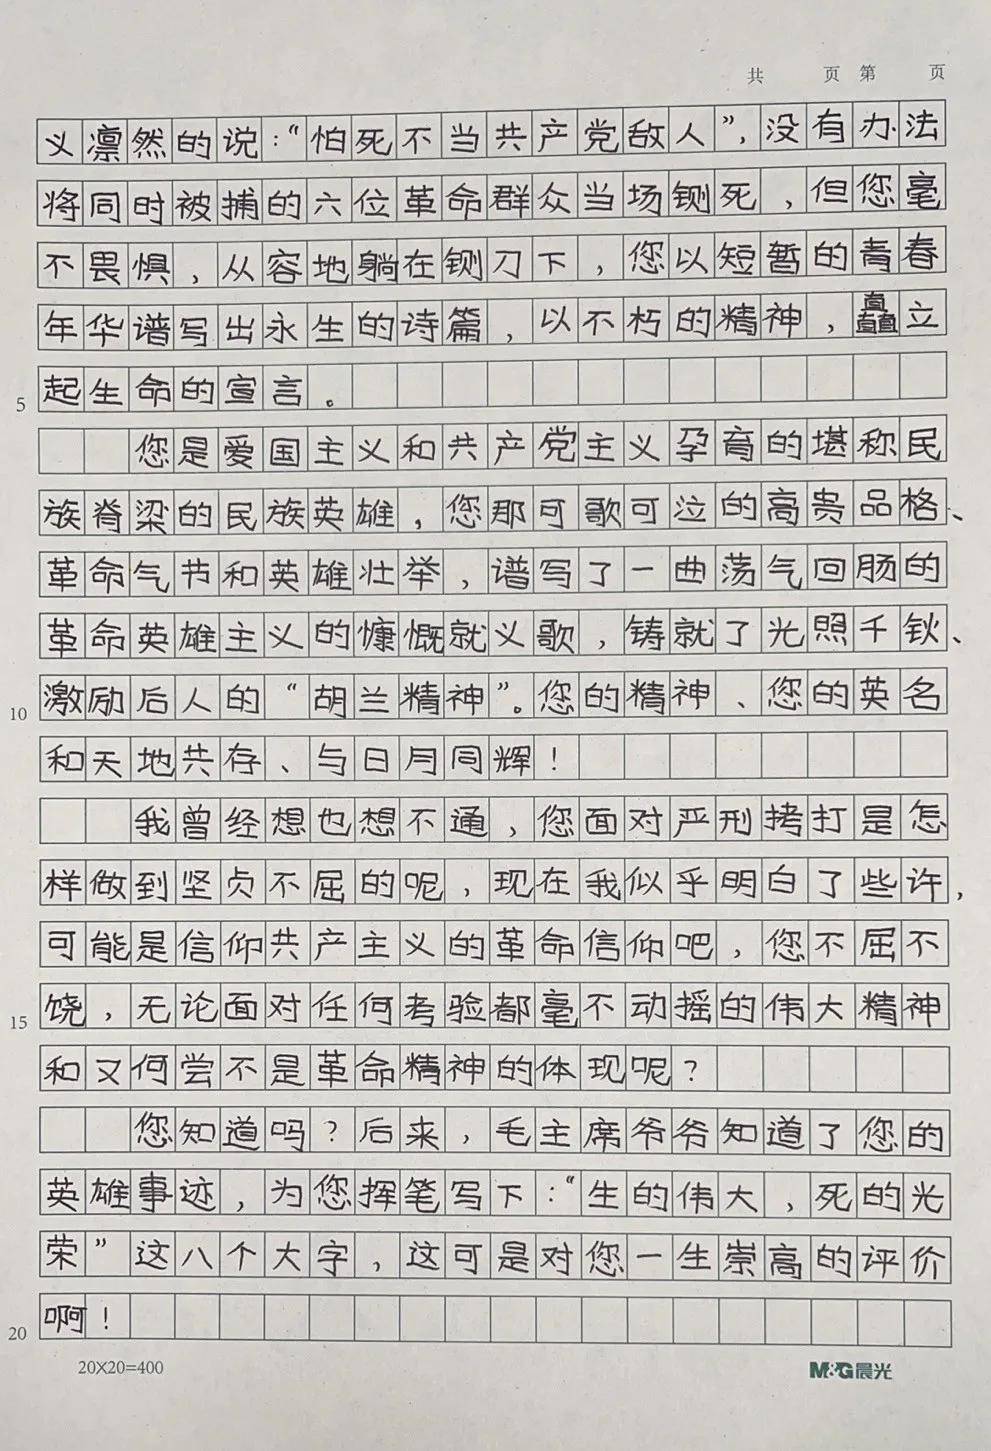 共 页 第 页
义凛然的说：“怕死不当共产党敌人”，没有办法
将同时被捕的六位革命群众当场铡死，但您毫
不畏惧，从容地躺在铡刀下，您以短暂的青春
年华谱写出永生的诗篇，以不朽的精神，矗立
起生命的宣言。
5
您是爱国主义和共产党主义孕育的堪称民
族脊梁的民族英雄，您那可歌可泣的高贵品格、
革命气节和英雄壮举，谱写了一曲荡气回肠的
革命英雄主义的慷慨就义歌，铸就了光照千钬、
激励后人的“胡兰精神”。您的精神、您的英名
10
和天地共存、与日月同辉！
我曾经想也想不通，您面对严刑拷打是怎
样做到坚贞不屈的呢，现在我似乎明白了些许，
可能是信仰共产主义的革命信仰吧，您不屈不
饶，无论面对任何考验都毫不动摇的伟大精神
15
和又何尝不是革命精神的体现呢？
您知道吗？后来，毛主席爷爷知道了您的
英雄事迹，为您挥笔写下：“生的伟大，死的光
荣”这八个大字，这可是对您一生崇高的评价
啊！
20
20X20=400
M&G晨光